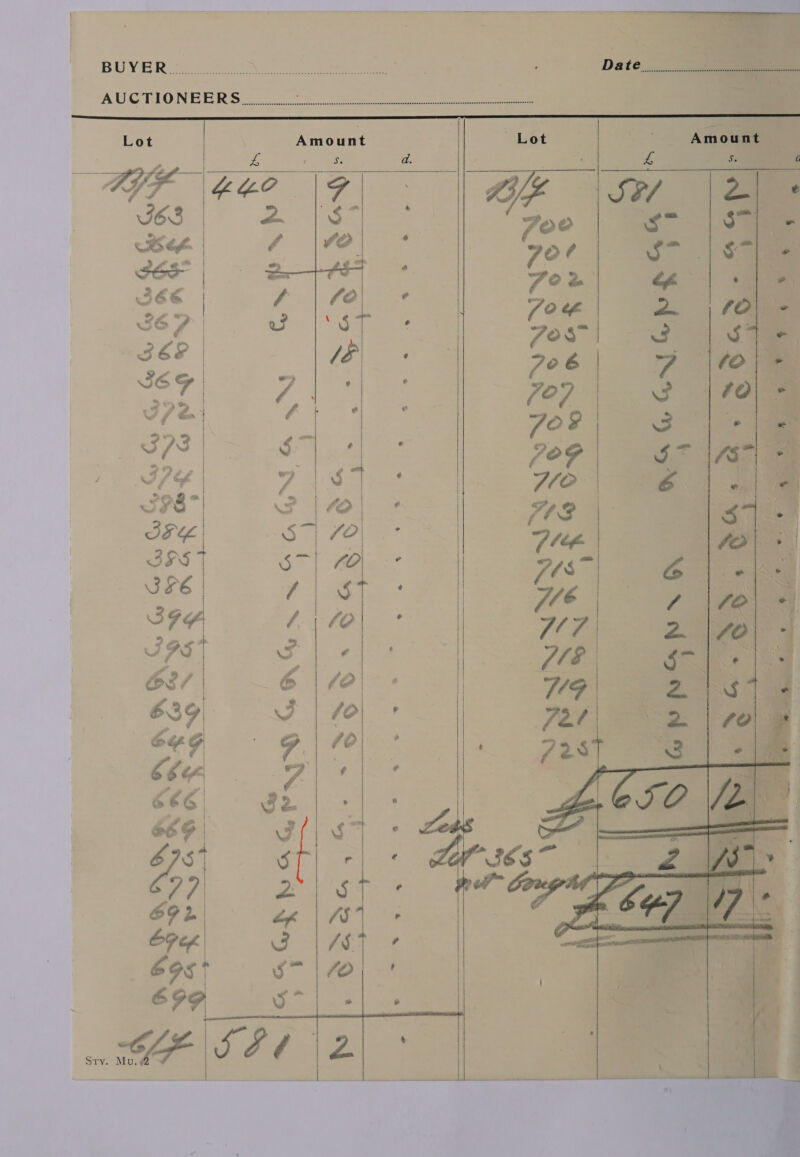 BUYER Date
AUCTIONEERS
Lot Amount
£ s. d.
B/F 440 9 .
363 2 5 .
364 1 10 .
365 2 15 .
366 1 10 .
367 3 5 .
368 18 .
369 7 . .
372 1 . .
373 5 . .
374 7 5 .
398 3 10 .
384 5 10 .
385 5 10 .
386 1 5 .
394 1 10 .
395 3 . .
631 6 10 .
639 3 10 .
649 9 10 .
664 7 . .
666 32 . .
669 3 5 .
675 5 . .
677 2 5 .
692 4 15 .
694 3 15 .
695 5 10 .
699 5 . .
C/F 581 2 .
Sty. Mu. 2
Lot Amount
£ s.
B/F 581 2 .
700 5 5 .
701 5 5 .
702 4 . .
704 2 10 .
705 3 5 .
706 7 10 .
707 3 10 .
708 3 . .
709 5 15 .
710 6 . .
713 5 .
714 10 .
715 6 . .
716 1 10 .
717 2 10 .
718 5 . .
719 2 5 .
721 2 10 .
725 3 . .
£650 12
Less
Lot 365 2 15 .
not bought £647 17 .